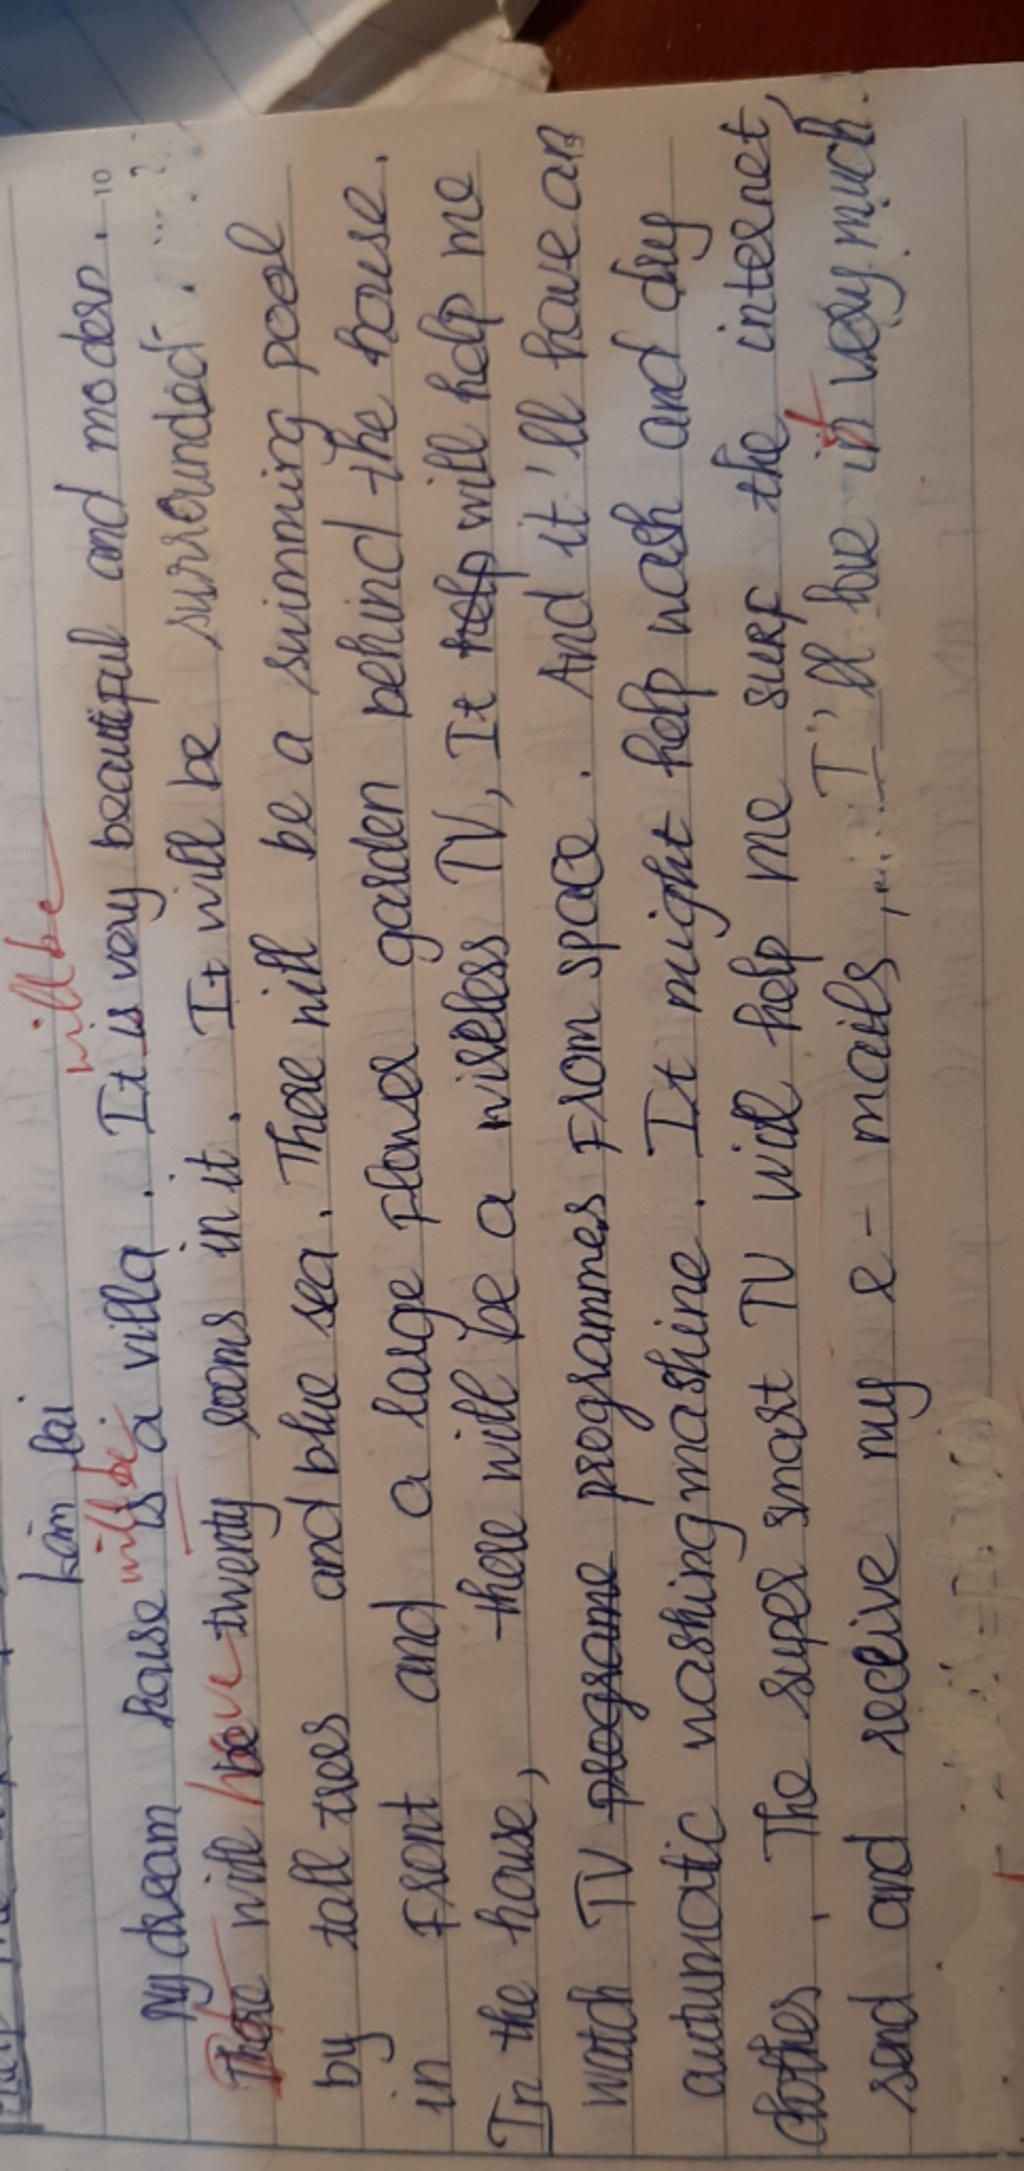 kām lai
will be
will be
My dream house is a villa. It is very beautiful and modern. 10
There will have twenty rooms in it. It will be surrounded
by tall trees and blue sea. There will be a swimming pool
in front and a large flower garden behind the house.
In the house, there will be a wireless TV, It help will help me
watch TV programe programmes from space. And it'll have an
autumatic washing mashine. It might help wash and dry
clothes. The super smart TV will help me surf the internet,
send and receive my e-mails,... I'll live in it very much.